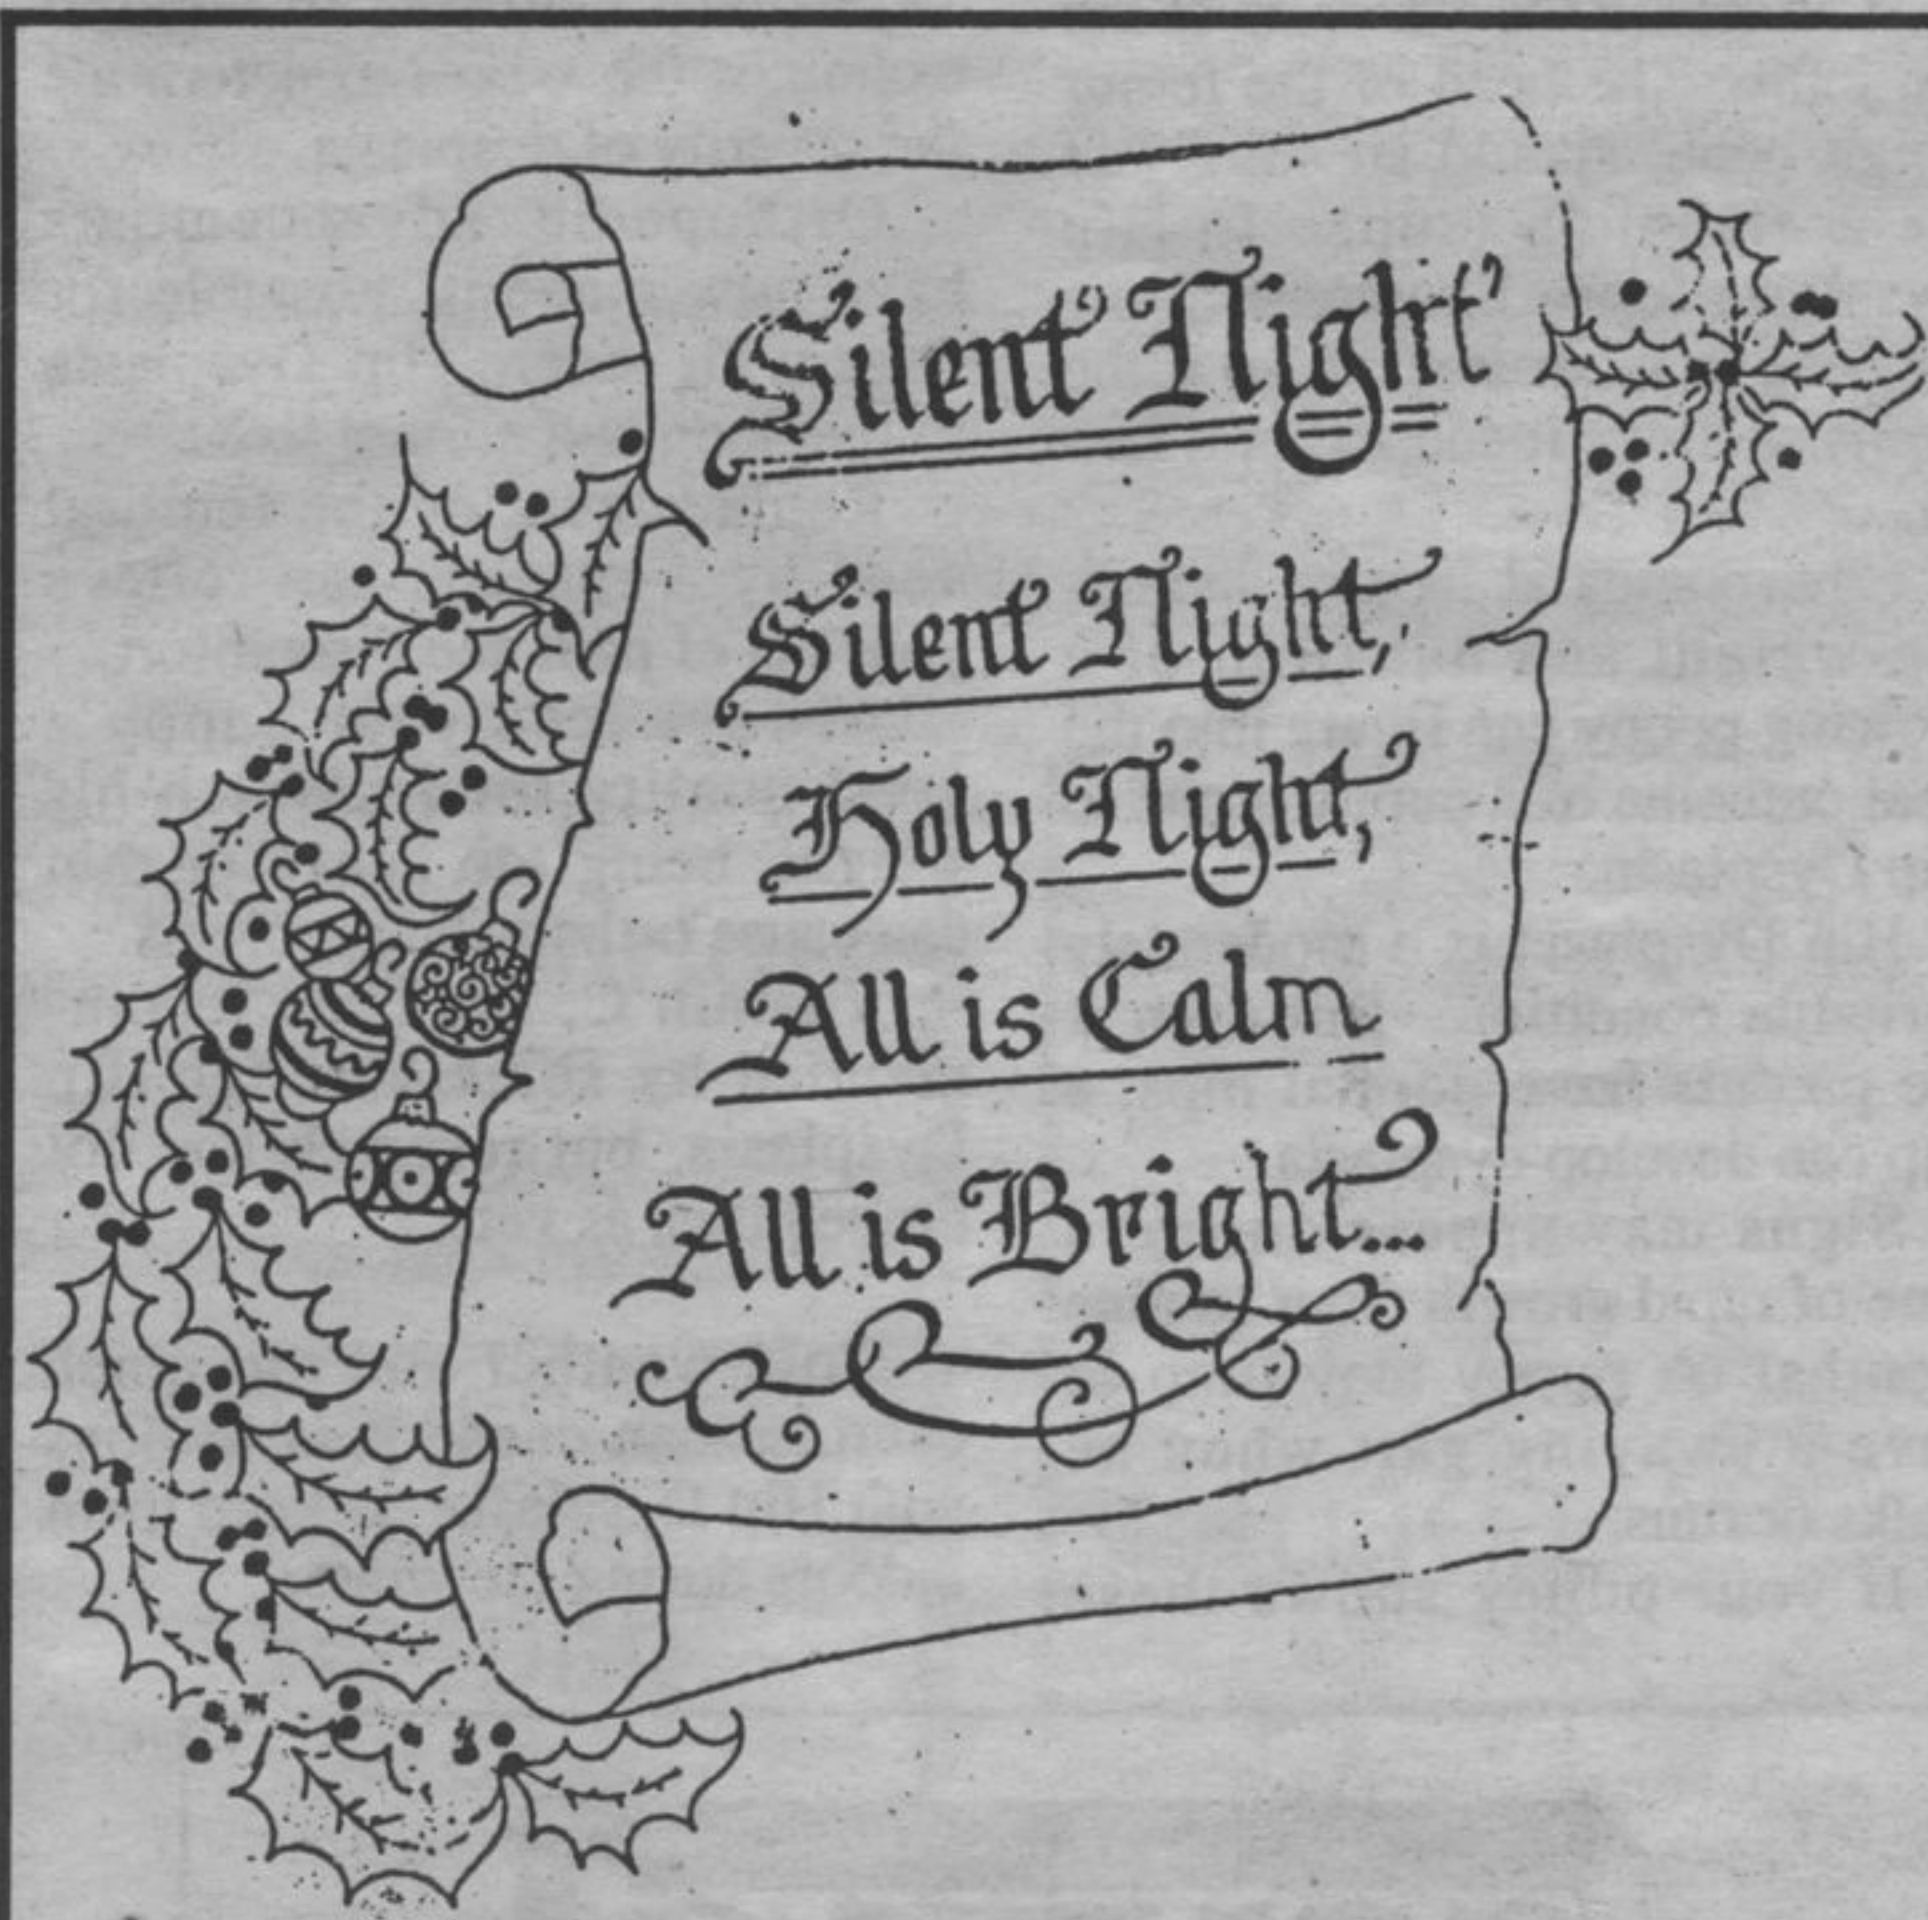 Silent Night
Silent Night,
Holy Night,
All is Calm
All is Bright...